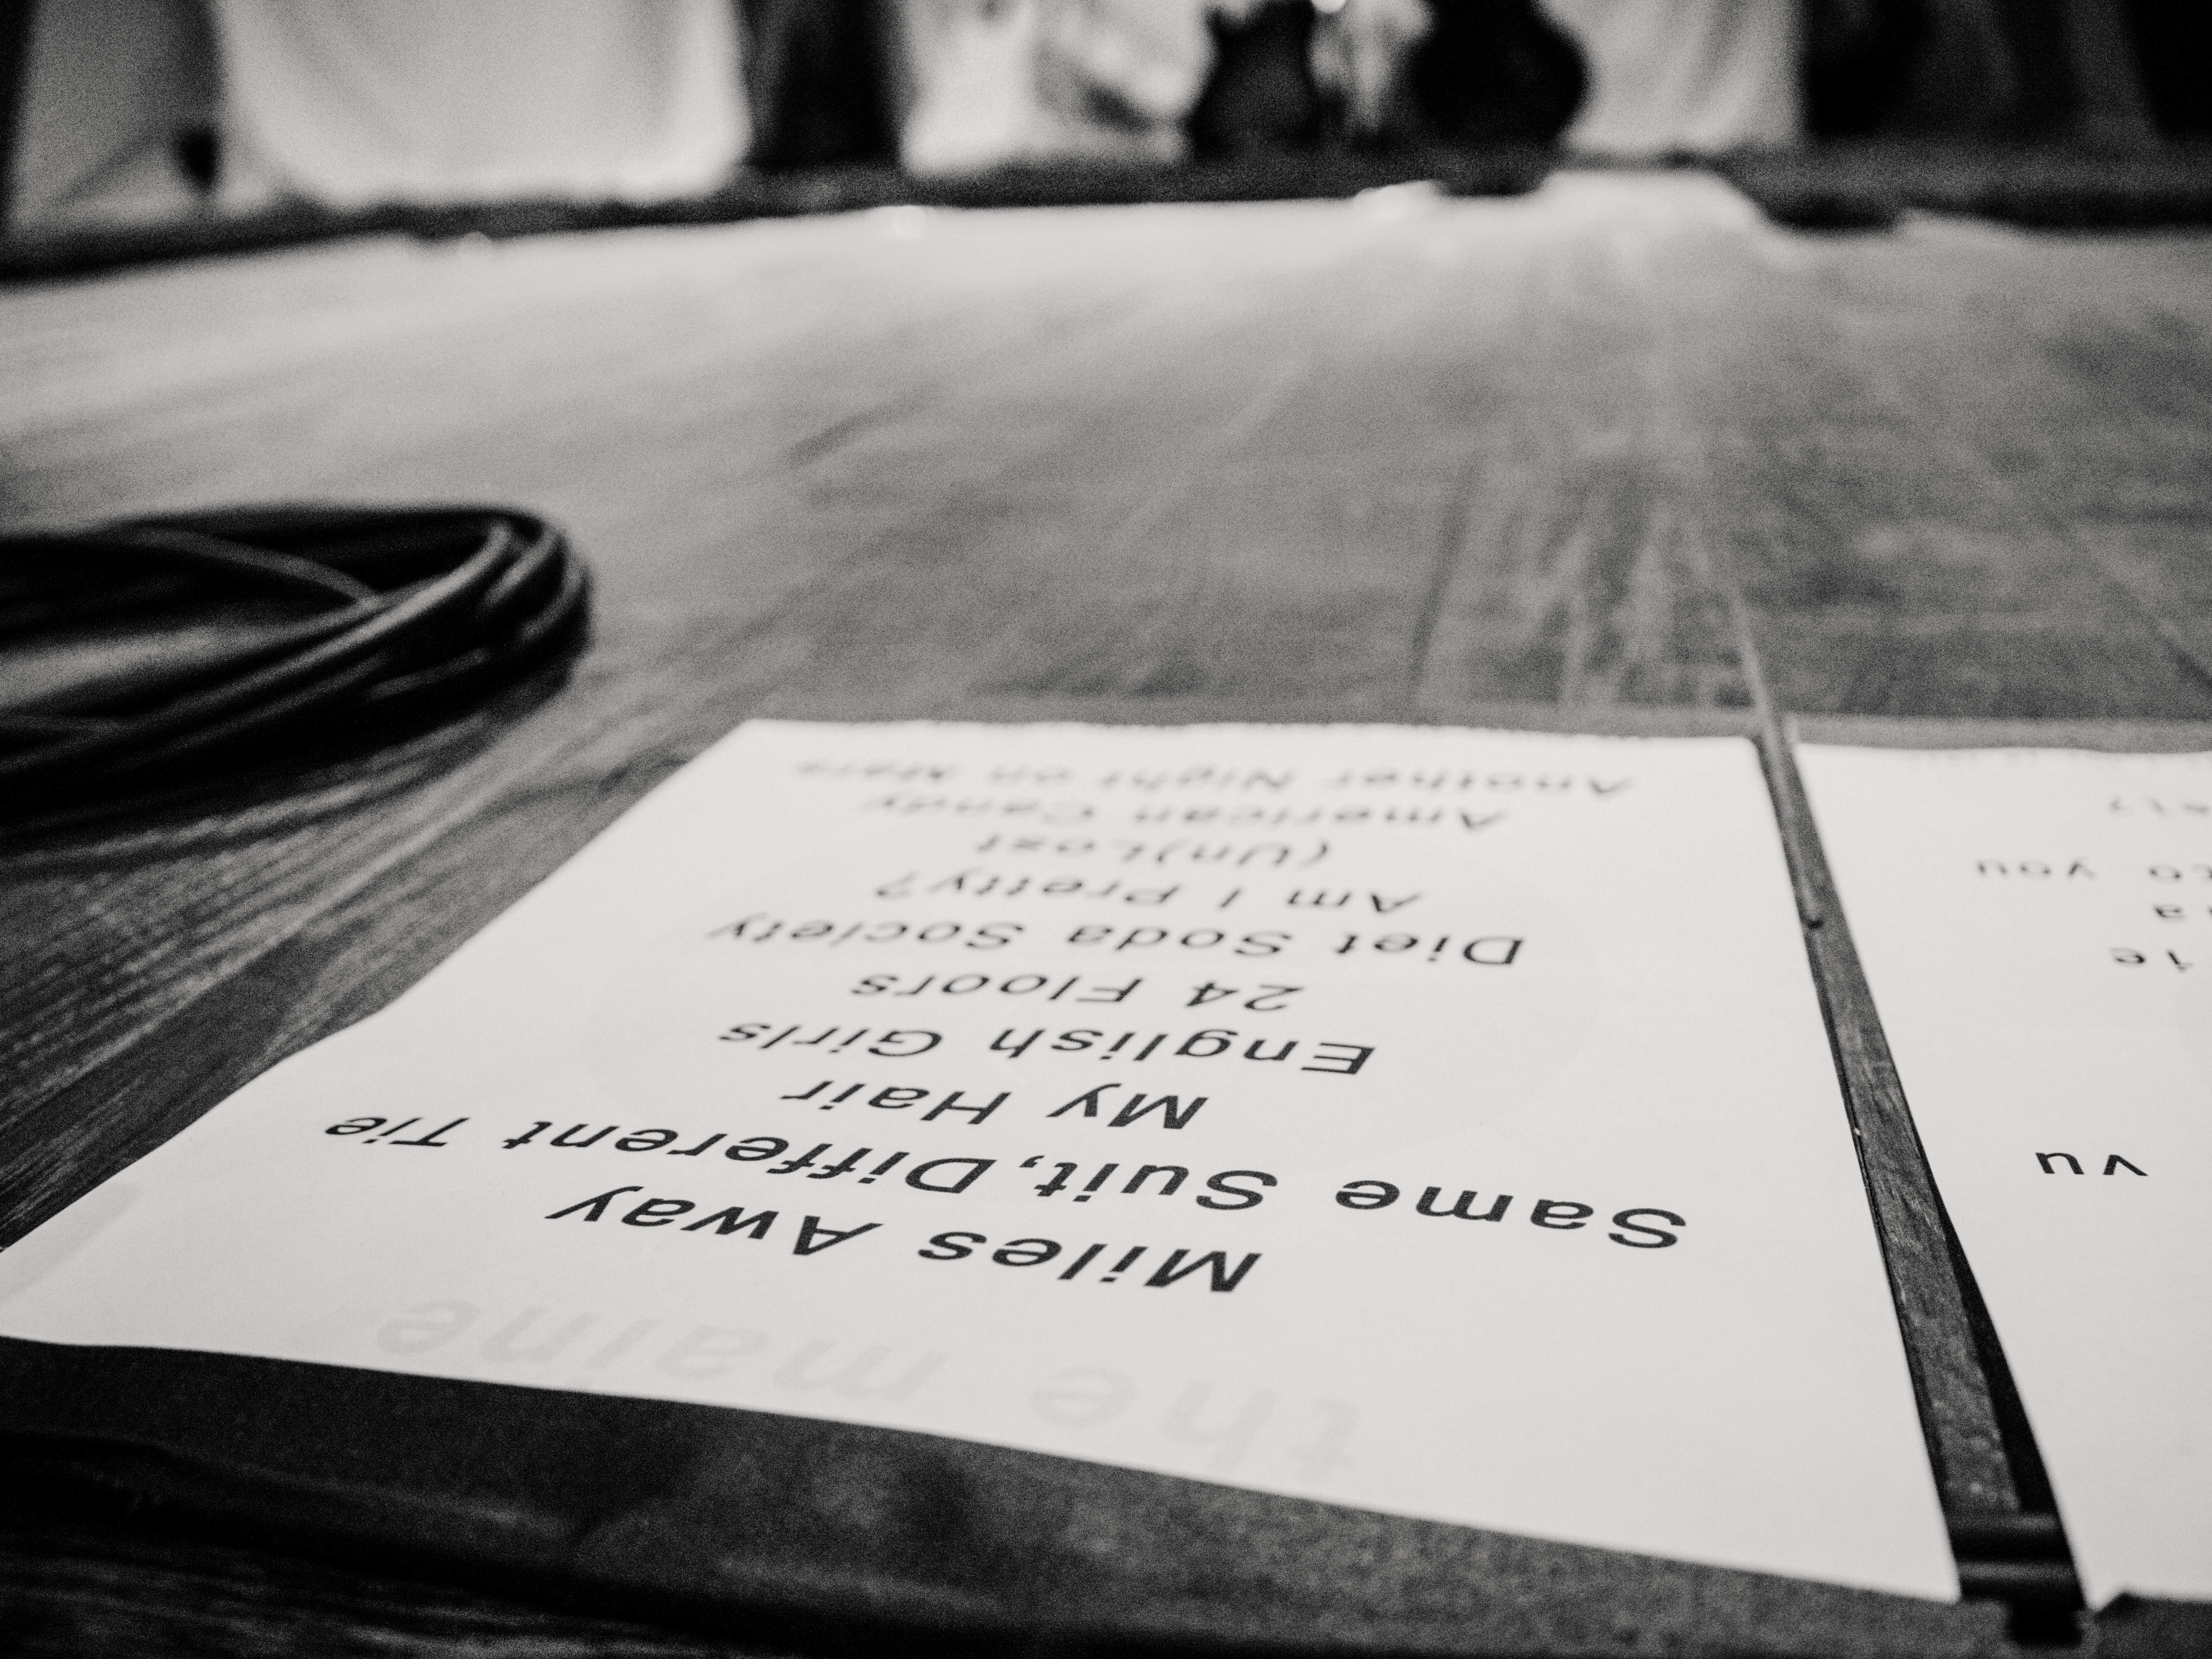 the maine
Miles Away
Same Suit, Different Tie
My Hair
English Girls
24 Floors
Diet Soda Society
Am I Pretty?
(Un)Lost
American Candy
Another Night on Mars
vu
ie
a
to you